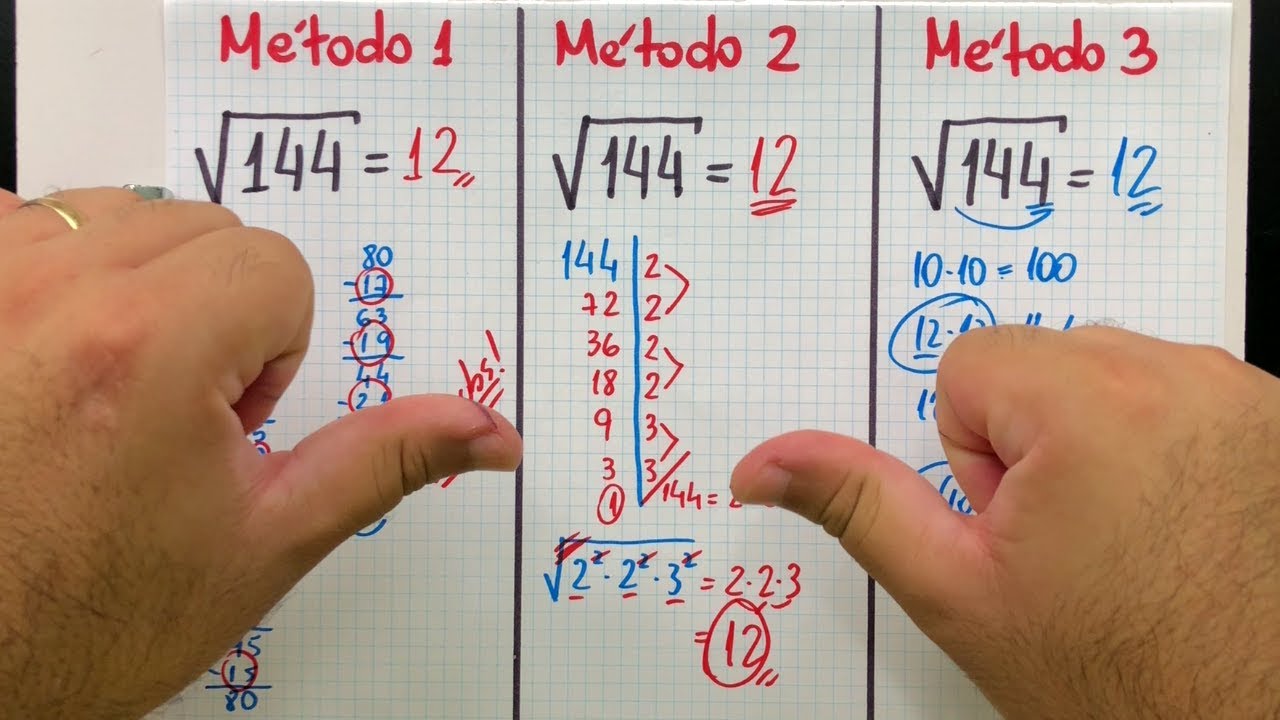 Método 1
√144 = 12
80
-17
63
-19
44
-21
15
-15
80
Método 2
√144 = 12
144 | 2
72 | 2
36 | 2
18 | 2
9 | 3
3 | 3
1
144 =
√2²·2²·3² = 2·2·3
= 12
Método 3
√144 = 12
10·10 = 100
12·12